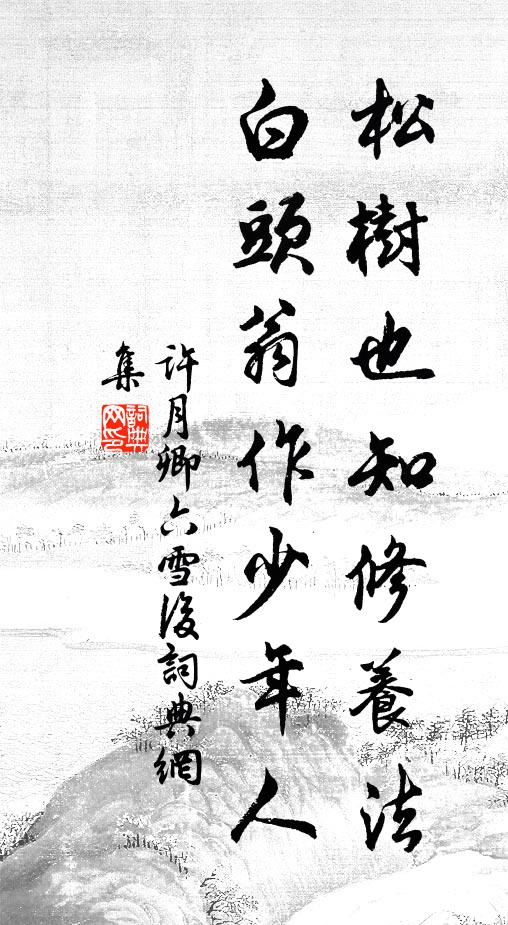 松樹也知修養法
白頭翁作少年人
許月卿六雪後詞典網
集
詞典
网印